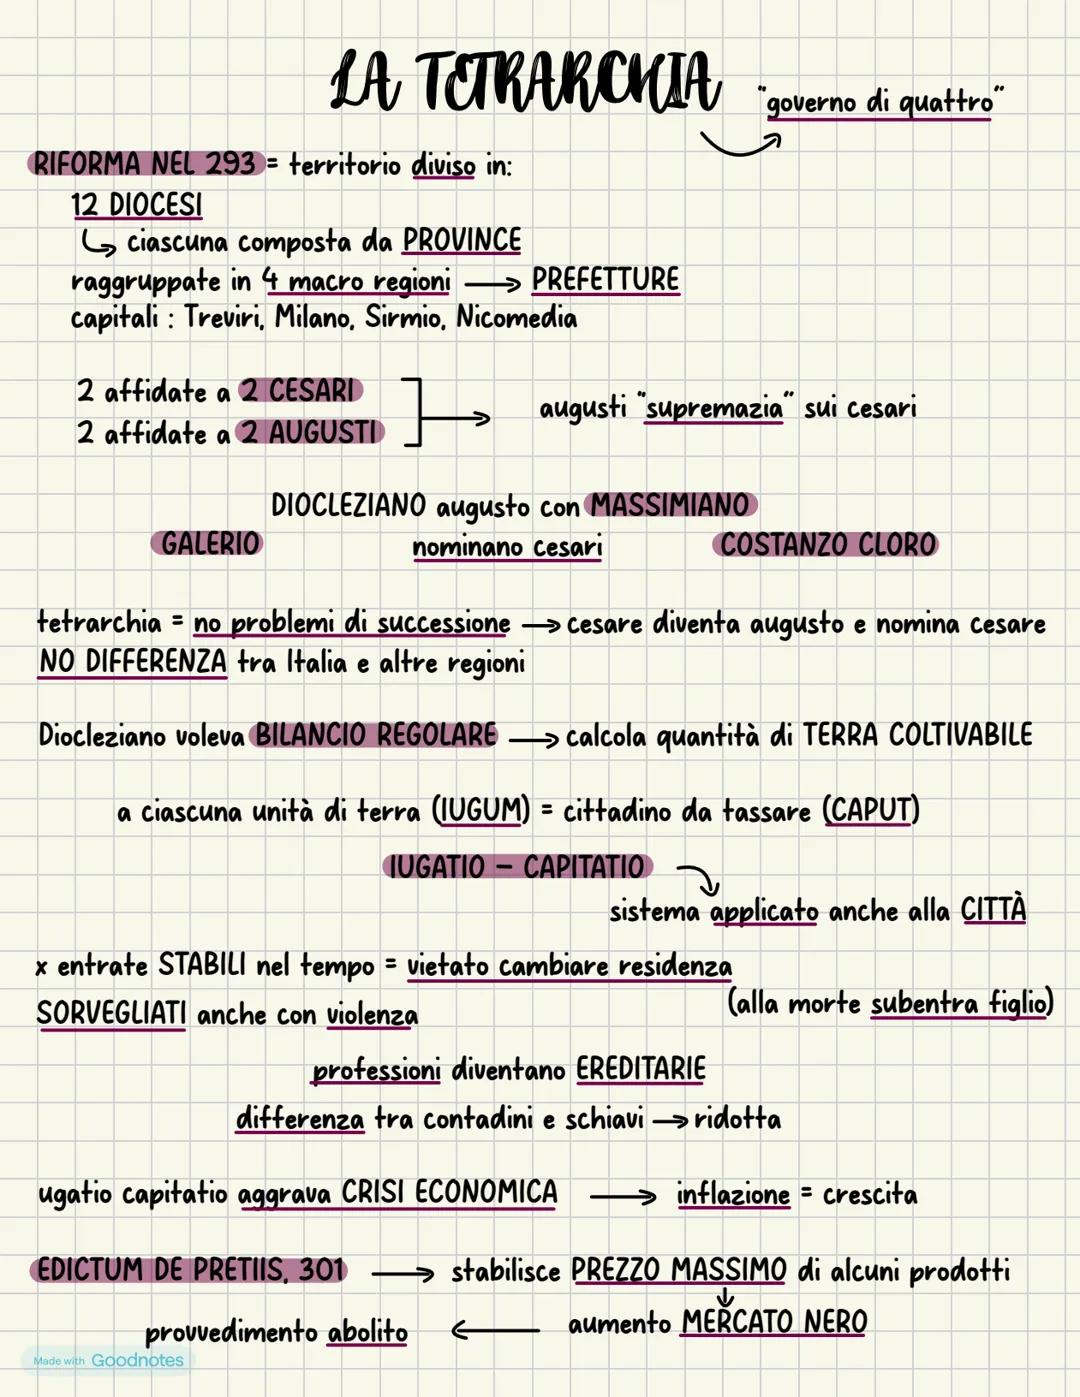 LA TETRARCHIA
"governo di quattro"
RIFORMA NEL 293 = territorio diviso in:
12 DIOCESI
ciascuna composta da PROVINCE
raggruppate in 4 macro regioni → PREFETTURE
capitali : Treviri, Milano, Sirmio, Nicomedia
2 affidate a 2 CESARI
2 affidate a 2 AUGUSTI
augusti "supremazia" sui cesari
DIOCLEZIANO augusto con MASSIMIANO
GALERIO nominano cesari COSTANZO CLORO
tetrarchia = no problemi di successione → cesare diventa augusto e nomina cesare
NO DIFFERENZA tra Italia e altre regioni
Diocleziano voleva BILANCIO REGOLARE → calcola quantità di TERRA COLTIVABILE
a ciascuna unità di terra (IUGUM) = cittadino da tassare (CAPUT)
IUGATIO - CAPITATIO
sistema applicato anche alla CITTÀ
x entrate STABILI nel tempo = vietato cambiare residenza
(alla morte subentra figlio)
SORVEGLIATI anche con violenza
professioni diventano EREDITARIE
differenza tra contadini e schiavi → ridotta
ugatio capitatio aggrava CRISI ECONOMICA → inflazione = crescita
EDICTUM DE PRETIIS, 301 → stabilisce PREZZO MASSIMO di alcuni prodotti
↓
provvedimento abolito ← aumento MERCATO NERO
Made with Goodnotes